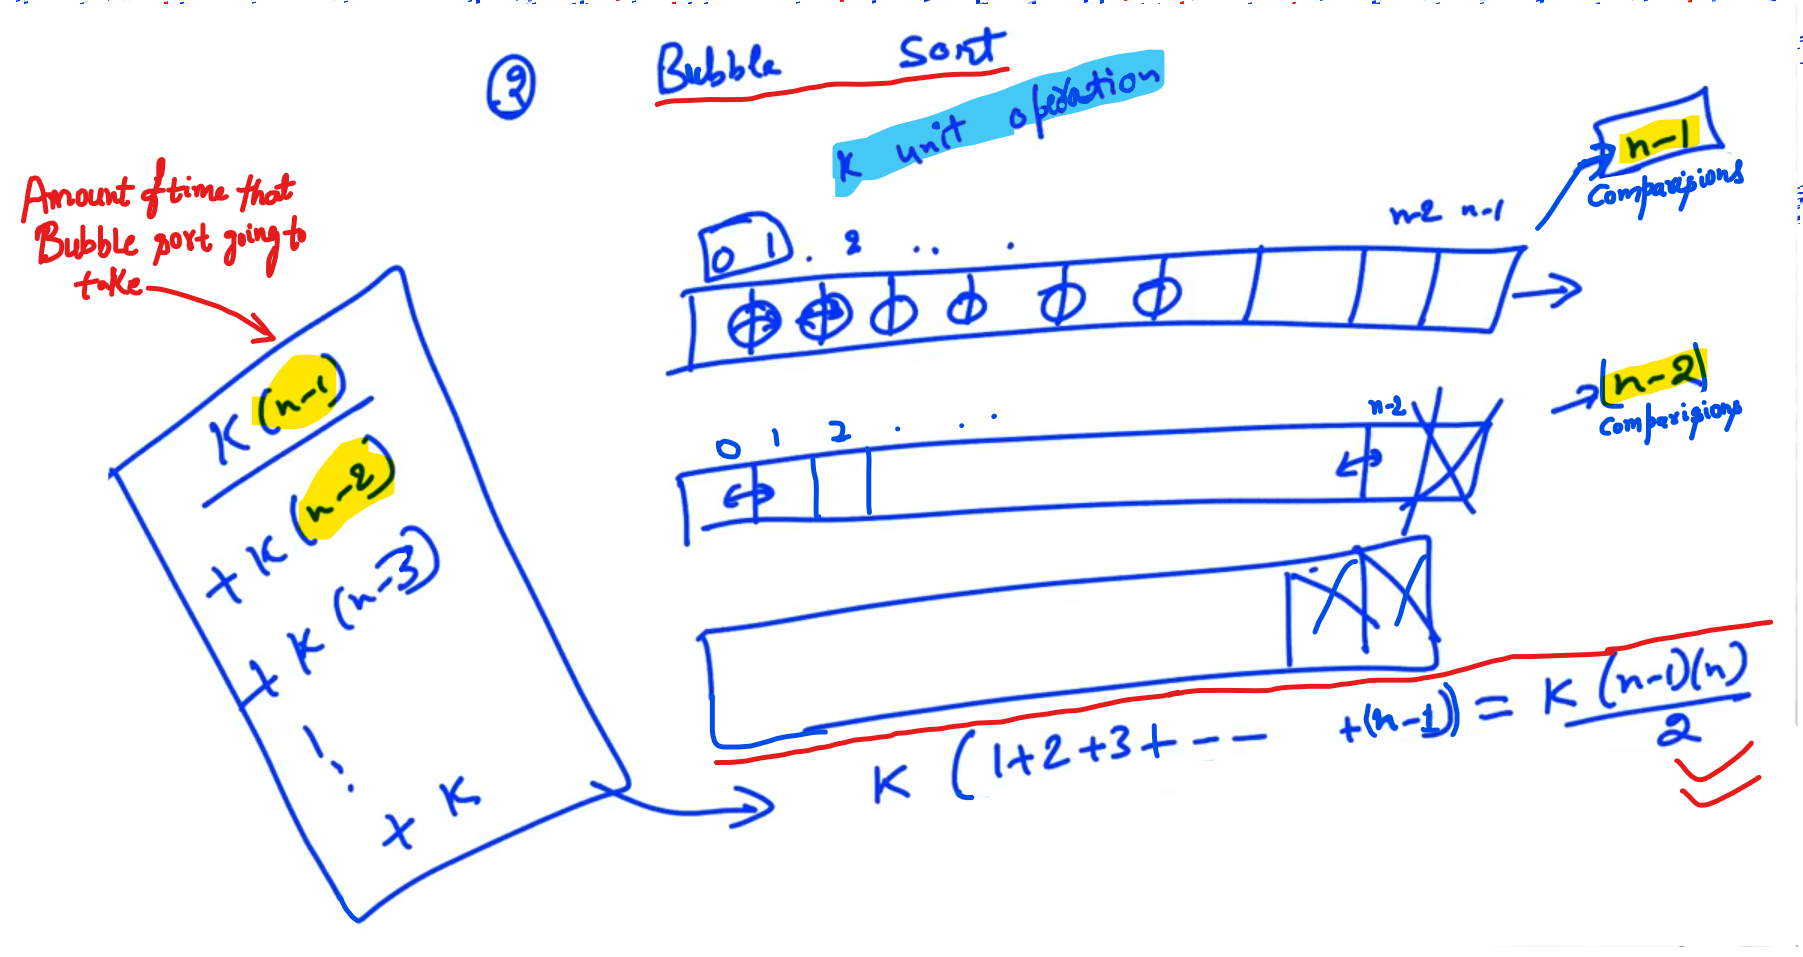 2 Bubble Sort
K unit operation
Amount of time that
Bubble sort going to
take
n-1
Comparisions
n-2 n-1
0 1 . 2 . . .
n-2
Comparisions
0 1 2 . . . n-2
K (n-1)
+ K (n-2)
+ K (n-3)
+ K
K (1+2+3+---- +(n-1)) = K (n-1)(n)
2